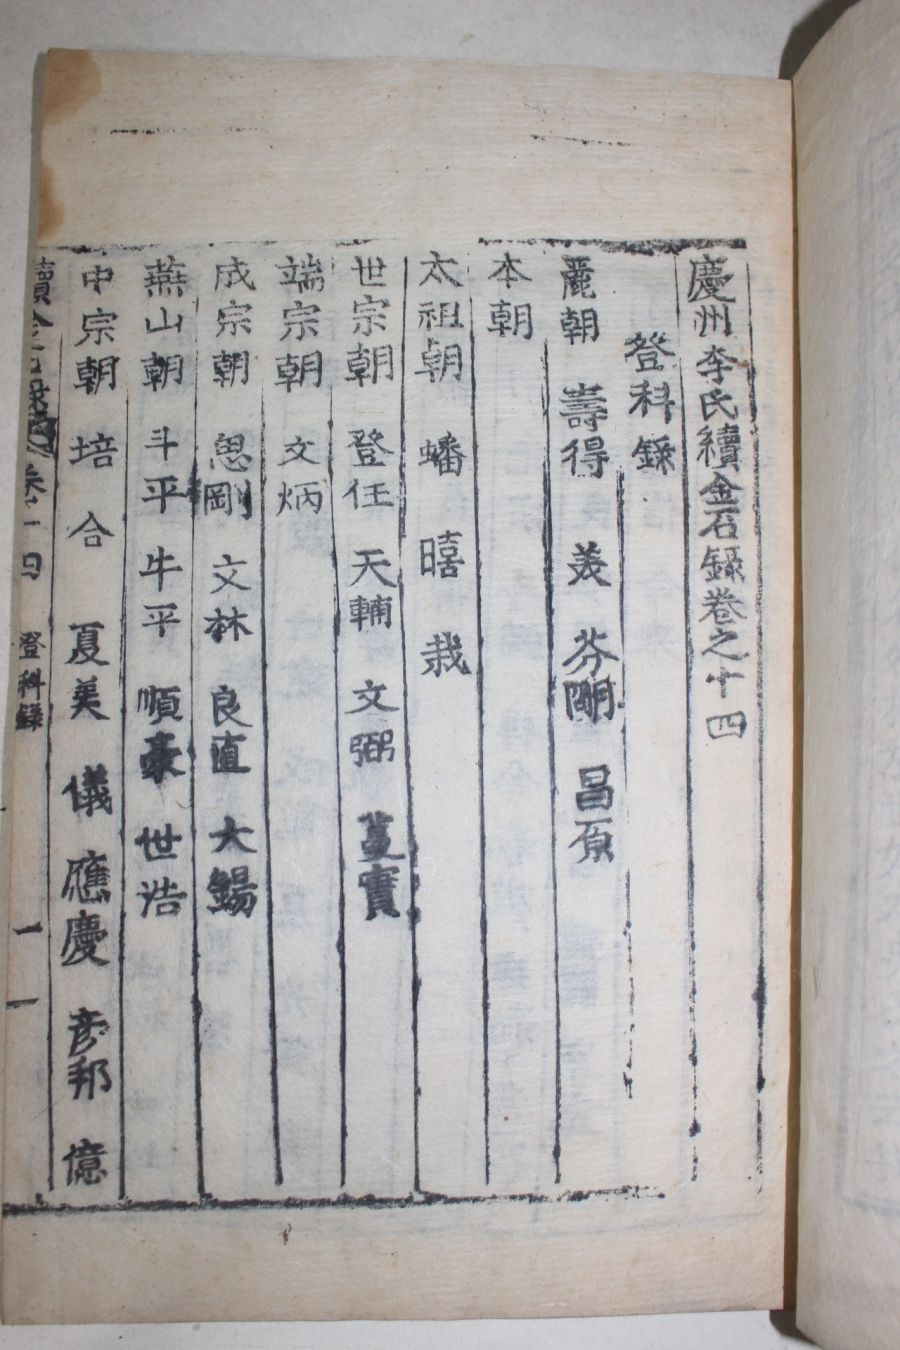 慶州李氏續金石錄卷之十四
登科錄
麗朝 壽得 美 芬 昌原
本朝
太祖朝 蟠 暿 栽
世宗朝 登任 天輔 文弼 蔓實
端宗朝 文炳
成宗朝 思剛 文林 良直 大錫
燕山朝 斗平 牛平 順豪 世浩
中宗朝 培 合 夏美 儀 應慶 彦邦 億
續金石錄 卷十四 登科錄 一